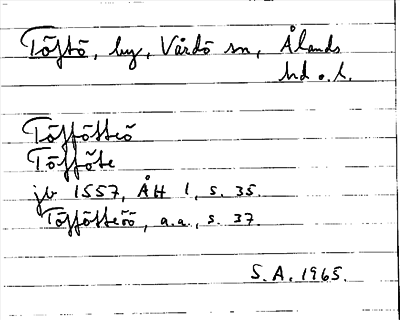 Töftö, by, Vårdö sn, Ålands
hd o. l.
Töffötteö
Töfföte
jb 1557, ÅH 1, s. 35.
Töffötteöö, a.a., s. 37.
S.A. 1965.